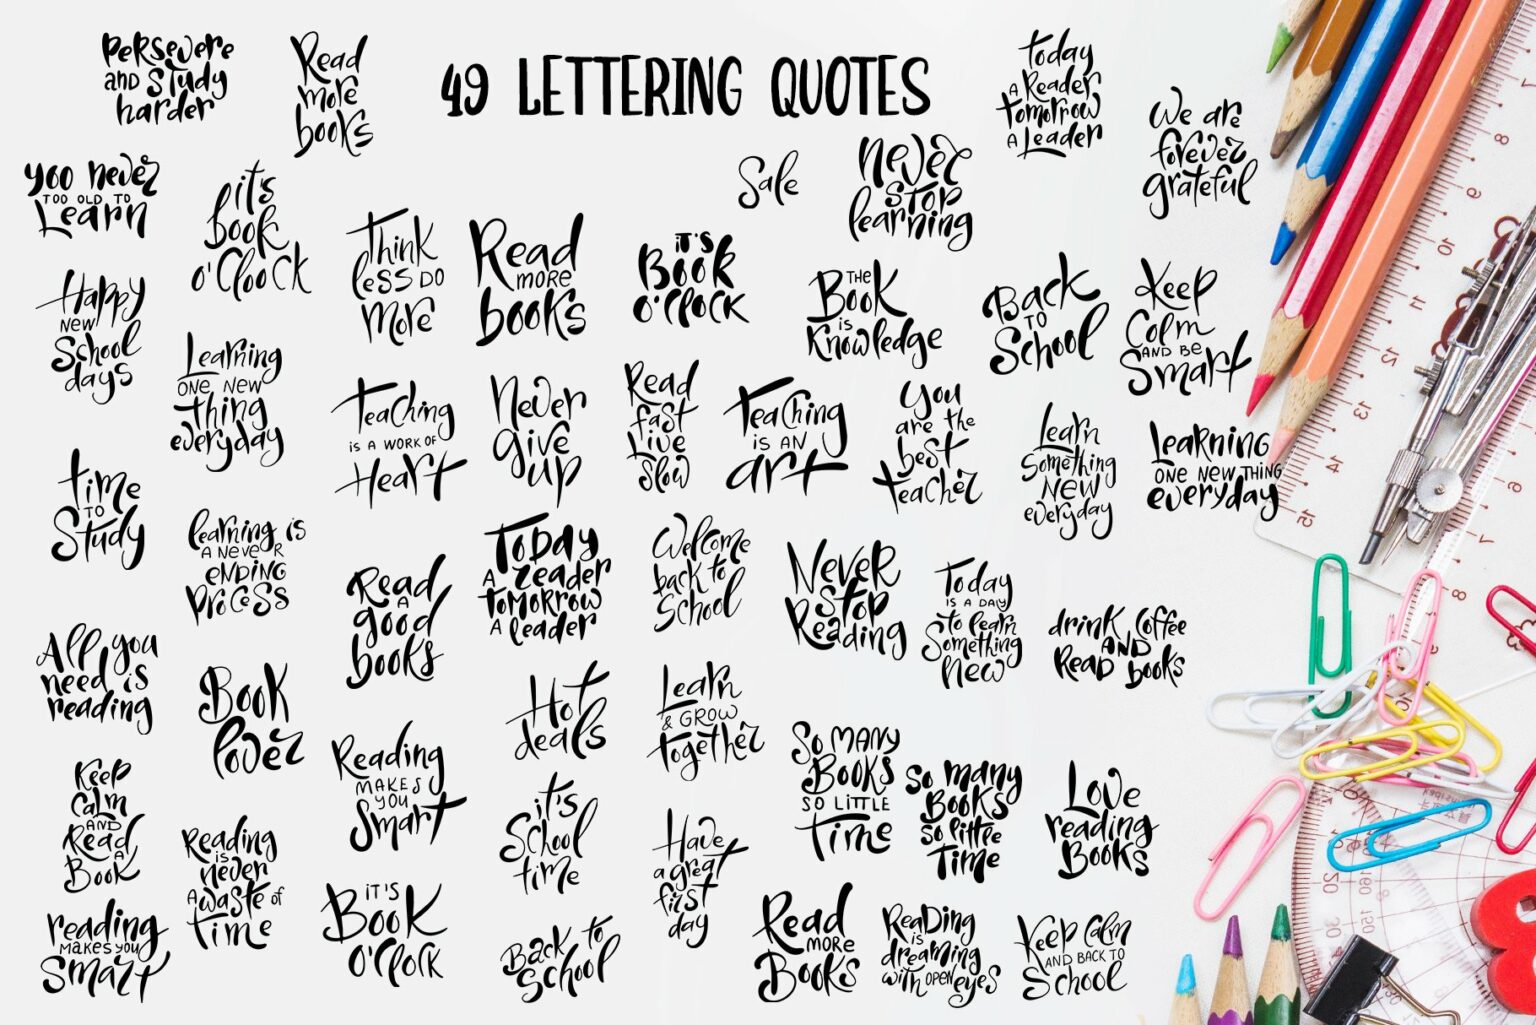 49 LETTERING QUOTES
PERSEVERE
AND STUDY
harder
Read
more
books
Today
A Reader
tomorrow
A Leader
We are
forever
grateful
Sale
Never
STOP
learning
you never
TOO OLD TO
Learn
it's
book
o'Clock
Think
less DO
more
Read
MORE
books
IT'S
Book
o'Clock
THE
Book
is
Knowledge
Back
TO
School
Keep
Calm
AND BE
Smart
Happy
NEW
School
days
Learning
ONE NEW
thing
everyday
Teaching
IS A WORK OF
Heart
Never
give
up
Read
fast
Live
slow
Teaching
IS AN
art
You
are the
best
teacher
Learn
Something
NEW
everyday
Learning
ONE NEW THING
everyday
time
TO
Study
learning is
A NEVER
ENDING
PROCESS
Read
A
good
books
TODAY
A reader
TOMORROW
A leader
Welcome
back to
School
Never
Stop
Reading
Today
IS A DAY
to learn
Something
New
drink coffee
AND
READ books
All you
need is
reading
Book
lover
Hot
deals
Learn
& GROW
together
Reading
MAKES
YOU
Smart
So MANY
Books
SO LITTLE
Time
So many
Books
So little
Time
Love
reading
Books
Keep
Calm
AND
Read
A
Book
Reading
is
never
A waste of
time
it's
School
time
Have
a great
first
day
reading
MAKES YOU
Smart
IT'S
Book
o'Clock
Back to
School
Read
MORE
Books
ReaDing
is
dreaming
with OPEN eyes
Keep Calm
AND BACK TO
School